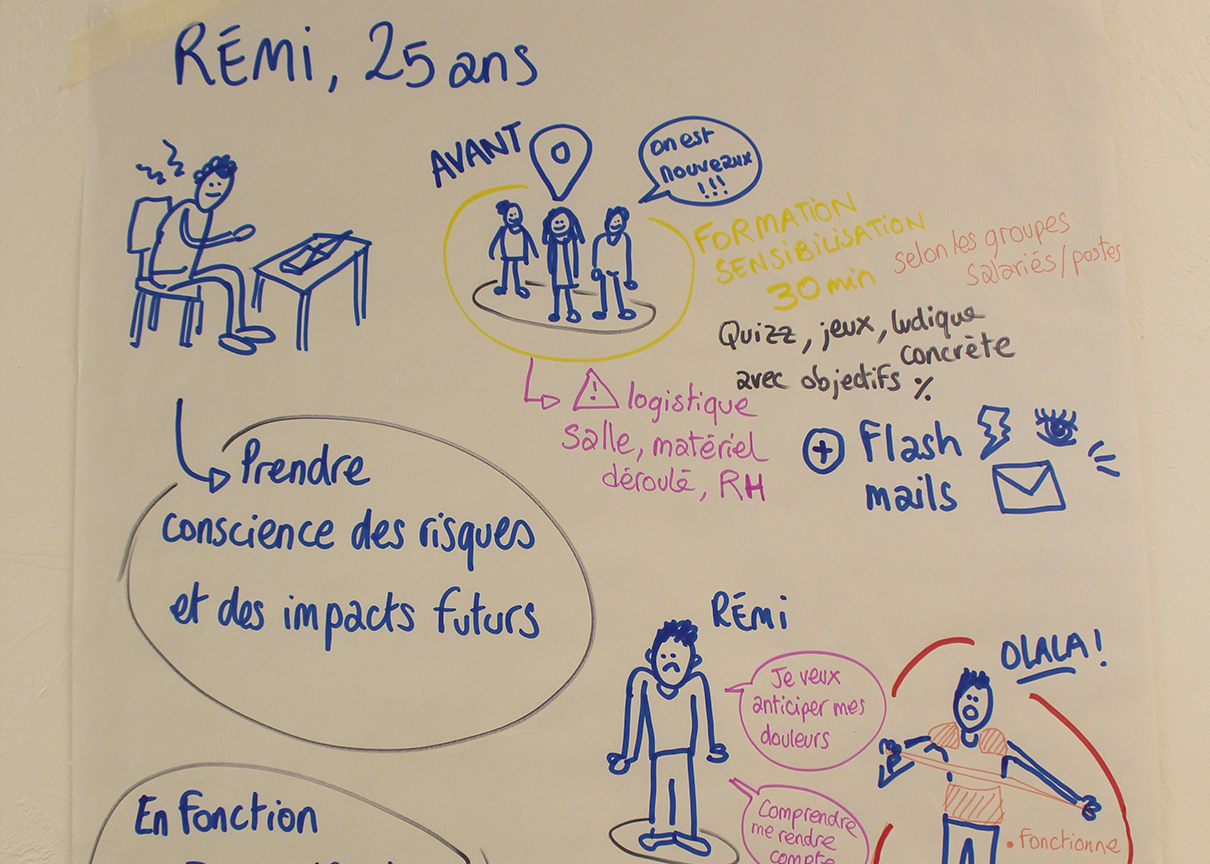 RÉMi, 25 ans
AVANT
on est
nouveaux
!!!
FORMATION
SENSIBILISATION
30 min
selon les groupes
salariés/postes
Quizz, jeux, ludique
concrète
avec objectifs %
logistique
Salle, matériel
déroulé, RH
+ Flash
mails
Prendre
conscience des risques
et des impacts futurs
RÉMi
Je veux
anticiper mes
douleurs
OLALA!
Comprendre
me rendre
compte
• Fonctionne
En Fonction